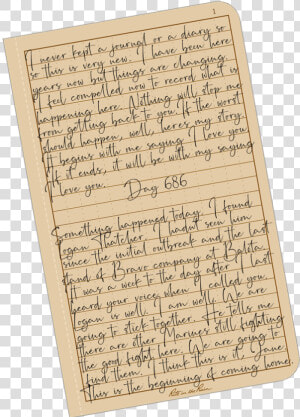 1
I never kept a journal or a diary so
so this is very new. I have been here
years now but things are changing.
I feel compelled now to record what is
happening here. Nothing will stop me
from getting back to you. If the worst
should happen, well, here's my story.
It begins with me saying I love you.
If it ends, it will be with my saying
I love you.
Day 686
Something happened today. I found
Logan Thatcher. I hadn't seen him
since the initial outbreak and the last
stand of Bravo company at
It was a week to the day after I last
heard your voice when I called you.
Logan is well. I am well. We are
going to stick together. He tells me
there are other Marines still fighting
the good fight here. We are going to
find them. I think this is it, Jane.
This is the beginning of coming home.